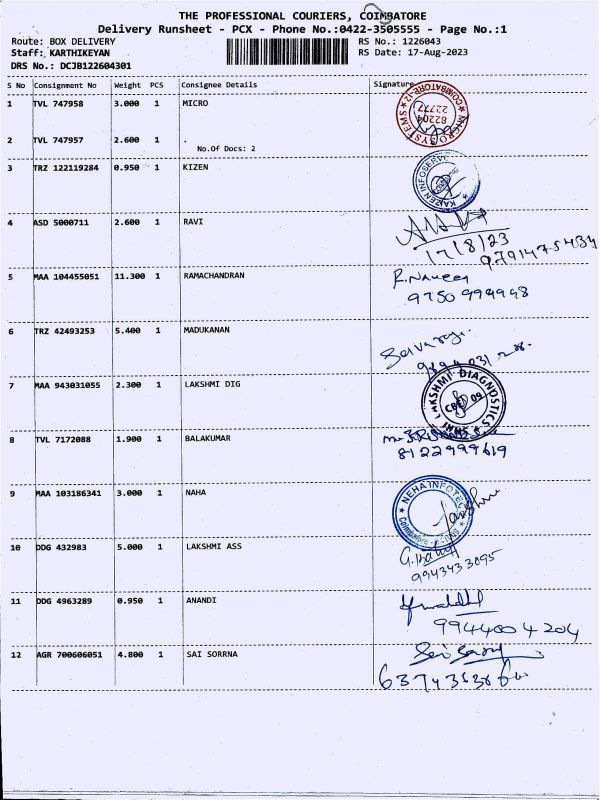 THE PROFESSIONAL COURIERS, COIMBATORE
Delivery Runsheet - PCX - Phone No.:0422-3505555 - Page No.:1
Route: BOX DELIVERY RS No.: 1226043
Staff: KARTHIKEYAN RS Date: 17-Aug-2023
DRS No.: DCJB122604301
S No Consignment No Weight PCS Consignee Details Signature
1 TVL 747958 3.000 1 MICRO
MICRO SYSTEMS COIMBATORE-12 82204 22777
2 TVL 747957 2.600 1 .
No.Of Docs: 2
3 TRZ 122119284 0.950 1 KIZEN
KAIZEN INFOSERV
4 ASD 5000711 2.600 1 RAVI
17/8/23
9791475434
5 MAA 104455051 11.300 1 RAMACHANDRAN
R.Naveen
9750994948
6 TRZ 42493253 5.400 1 MADUKANAN
Selvaraj
7 MAA 943031055 2.300 1 LAKSHMI DIG
LAKSHMI DIAGNOSTICS CBE 09
8 TVL 7172088 1.900 1 BALAKUMAR
8122999619
9 MAA 103186341 3.000 1 NAHA
NEHA INFOTEC Coimbatore
10 DDG 432983 5.000 1 LAKSHMI ASS
9943433095
11 DDG 4963289 0.950 1 ANANDI
9944004204
12 AGR 700606051 4.800 1 SAI SORRNA